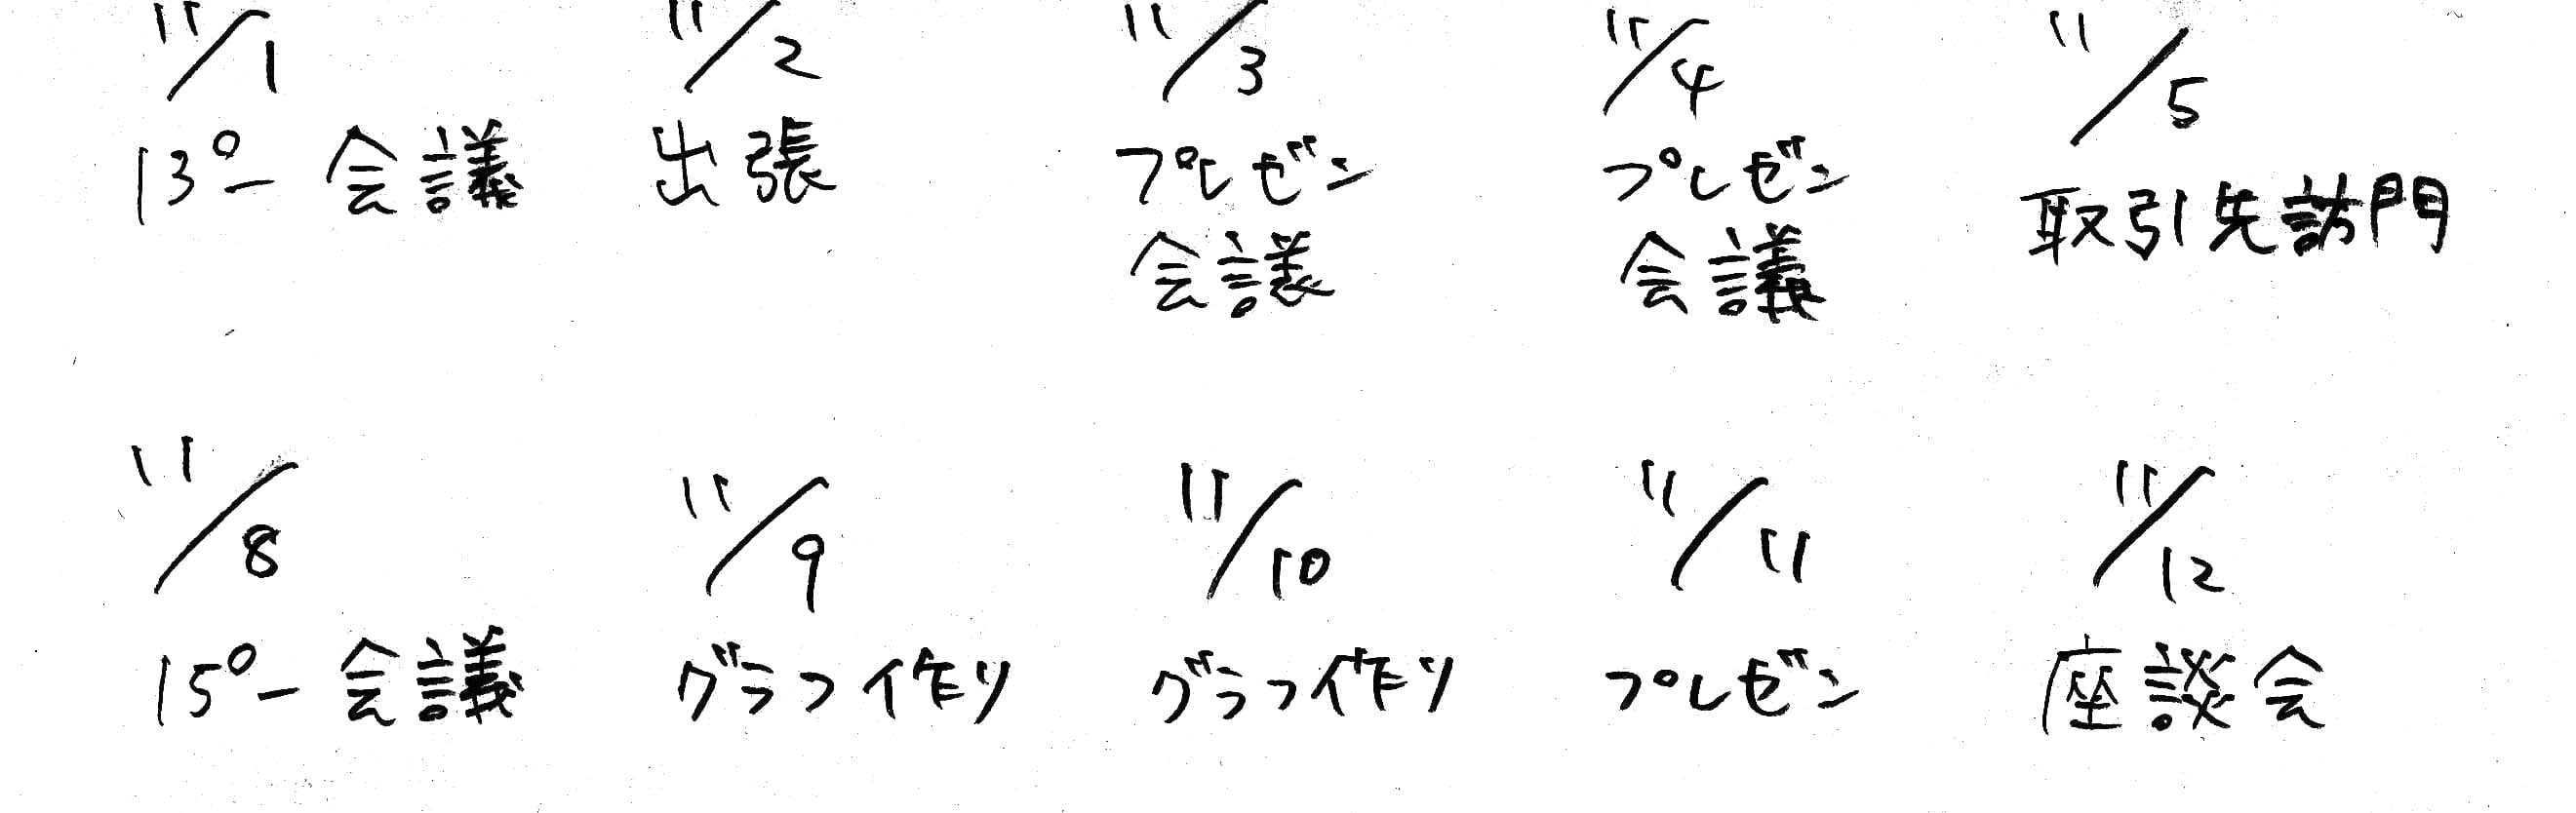 11/1 11/2 11/3 11/4 11/5
13°- 会議 出張 プレゼン プレゼン 取引先訪門
会議 会議
11/8 11/9 11/10 11/11 11/12
15°- 会議 グラフ作り グラフ作り プレゼン 座談会